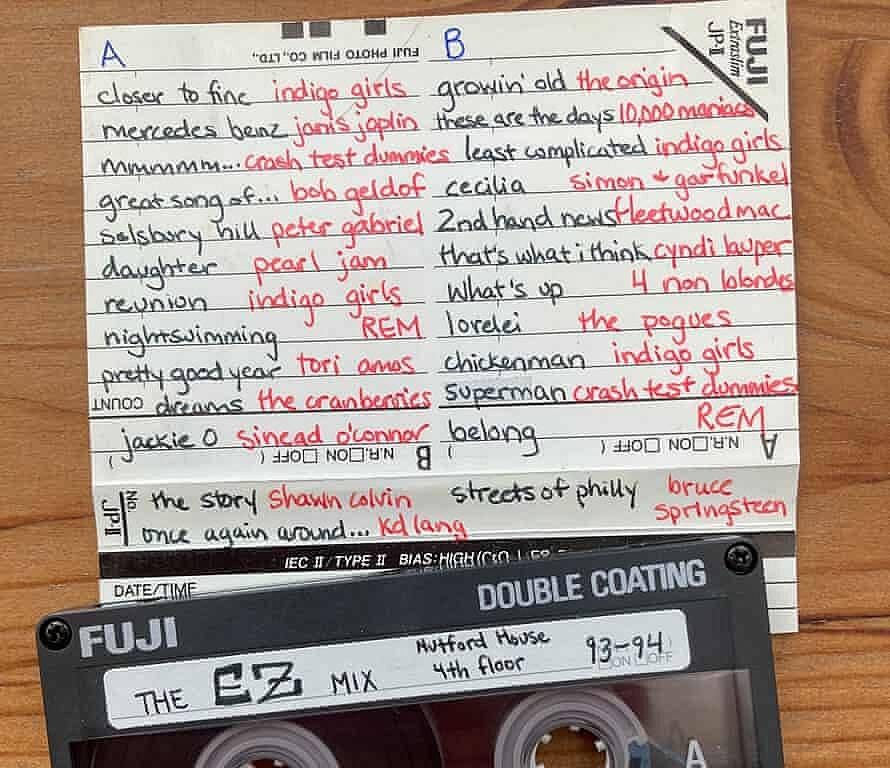 A
FUJI PHOTO FILM CO., LTD.
closer to fine indigo girls
mercedes benz janis joplin
mmmmm... crash test dummies
great song of... bob geldof
salsbury hill peter gabriel
daughter pearl jam
reunion indigo girls
nightswimming REM
pretty good year tori amos
COUNT
dreams the cranberries
jackie O sinead o'connor
B N.R. □ON □OFF ( )
B
FUJI
Extraslim
JP-II
growin' old the origin
these are the days 10,000 maniacs
least complicated indigo girls
cecilia simon + garfunkel
2nd hand news fleetwood mac
that's what i think cyndi lauper
What's up 4 non blondes
lorelei the pogues
chickenman indigo girls
superman crash test dummies
belong REM
A N.R. □ON □OFF ( )
No.
JP-II
the story shawn colvin
once again around... kd lang
streets of philly bruce
springsteen
IEC II / TYPE II BIAS: HIGH
DATE/TIME
DOUBLE COATING
FUJI
THE EZ MIX
Hutford House
4th floor
93-94
ON □OFF
A